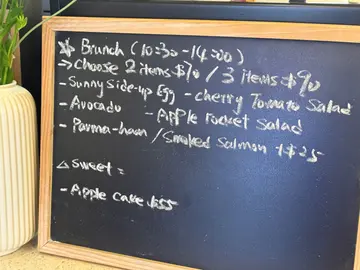 ☆ Brunch (10:30-14:00)
→ Choose 2 items $70 / 3 items $90
- Sunny Side-up Egg - cherry Tomato Salad
- Avocado - Apple rocket Salad
- Parma-ham / Smoked Salmon +$25
△ Sweet:
- Apple cake $55